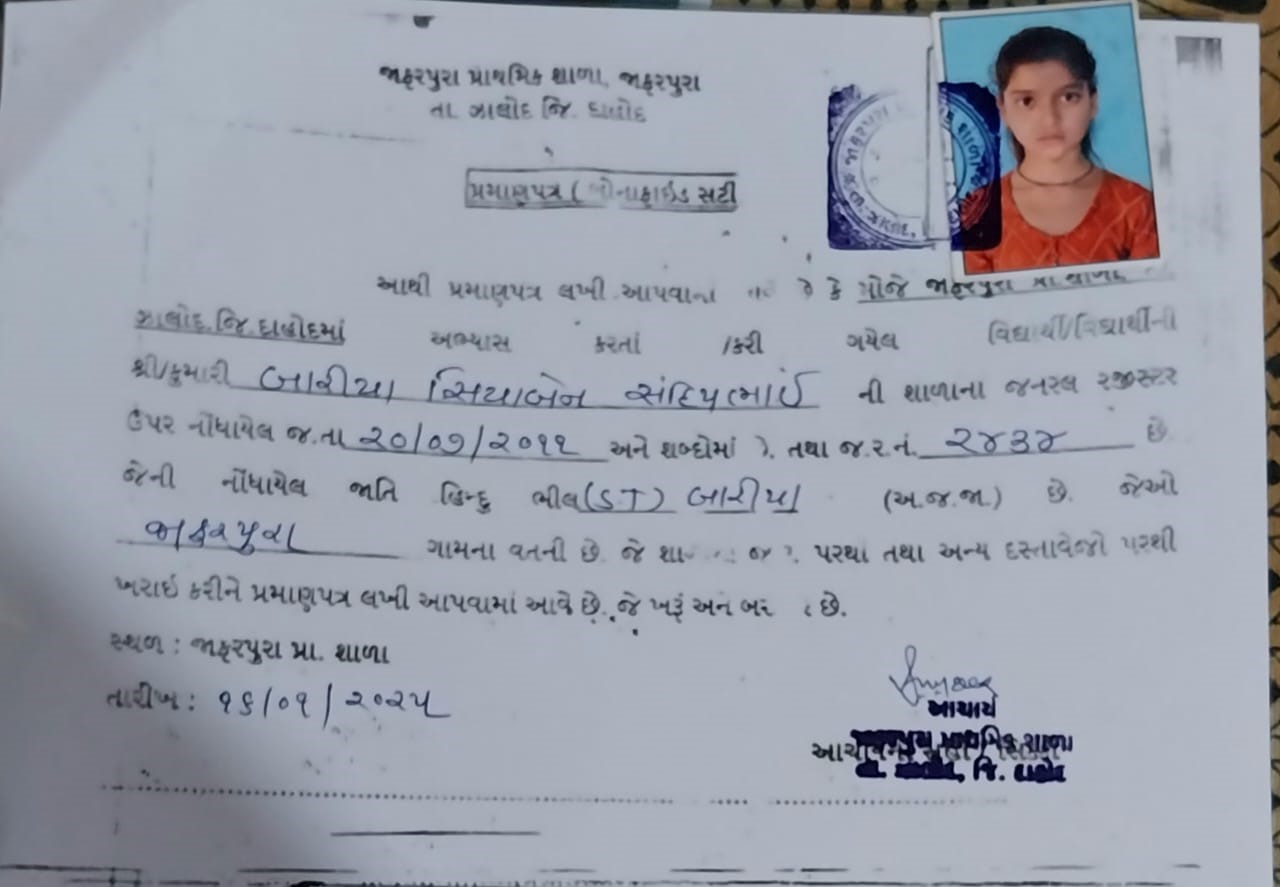 જાફરપુરા પ્રાથમિક શાળા, જાફરપુરા
તા. ઝાલોદ જિ. દાહોદ
પ્રમાણપત્ર ( બોનાફાઇડ સર્ટી
આથી પ્રમાણપત્ર લખી આપવામાં કે મોજે જાફરપુરા પ્રા શાળા
ઝાલોદ જિ. દાહોદમાં અભ્યાસ કરતાં /કરી ગયેલ વિદ્યાર્થી/વિદ્યાર્થીની
શ્રી/કુમારી બારીયા સિયાબેન સંદિપભાઈ ની શાળાના જનરલ રજીસ્ટર
ઉપર નોંધાયેલ જ.તા ૨૦/૦૭/૨૦૧૧ અને શબ્દોમાં તથા જ.ર.નં. ૨૪૩૪ છે.
જેની નોંધાયેલ જાતિ હિન્દુ ભીલ(ST) બારીયા (અ.જ.જા.) છે. જેઓ
જાફરપુરા ગામના વતની છે. જે પરથી તથા અન્ય દસ્તાવેજો પરથી
ખરાઇ કરીને પ્રમાણપત્ર લખી આપવામાં આવે છે. જે ખરૂં અને છે.
સ્થળ : જાફરપુરા પ્રા. શાળા
તારીખ : ૧૬/૦૧/૨૦૨૫
આચાર્ય
પ્રાથમિક શાળા
જિ. દાહોદ